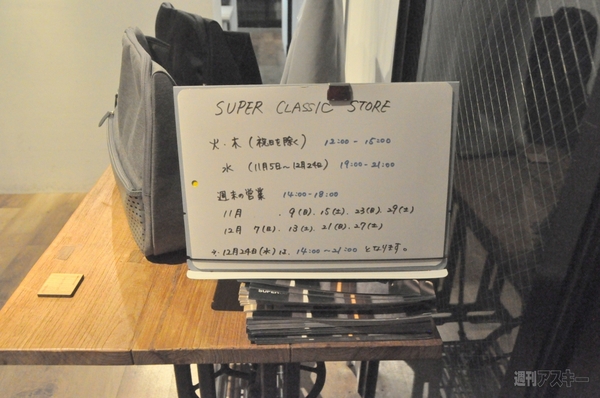 SUPER CLASSIC STORE
火・木 (祝日を除く) 12:00 - 15:00
水 (11月5日〜12月24日) 19:00 - 21:00
週末の営業 14:00 - 18:00
11月 9(日). 15(土). 23(日). 29(土)
12月 7(日). 13(土). 21(日). 27(土)
12月24日(水)は、14:00〜21:00 となります。
SUPER
週刊アスキー